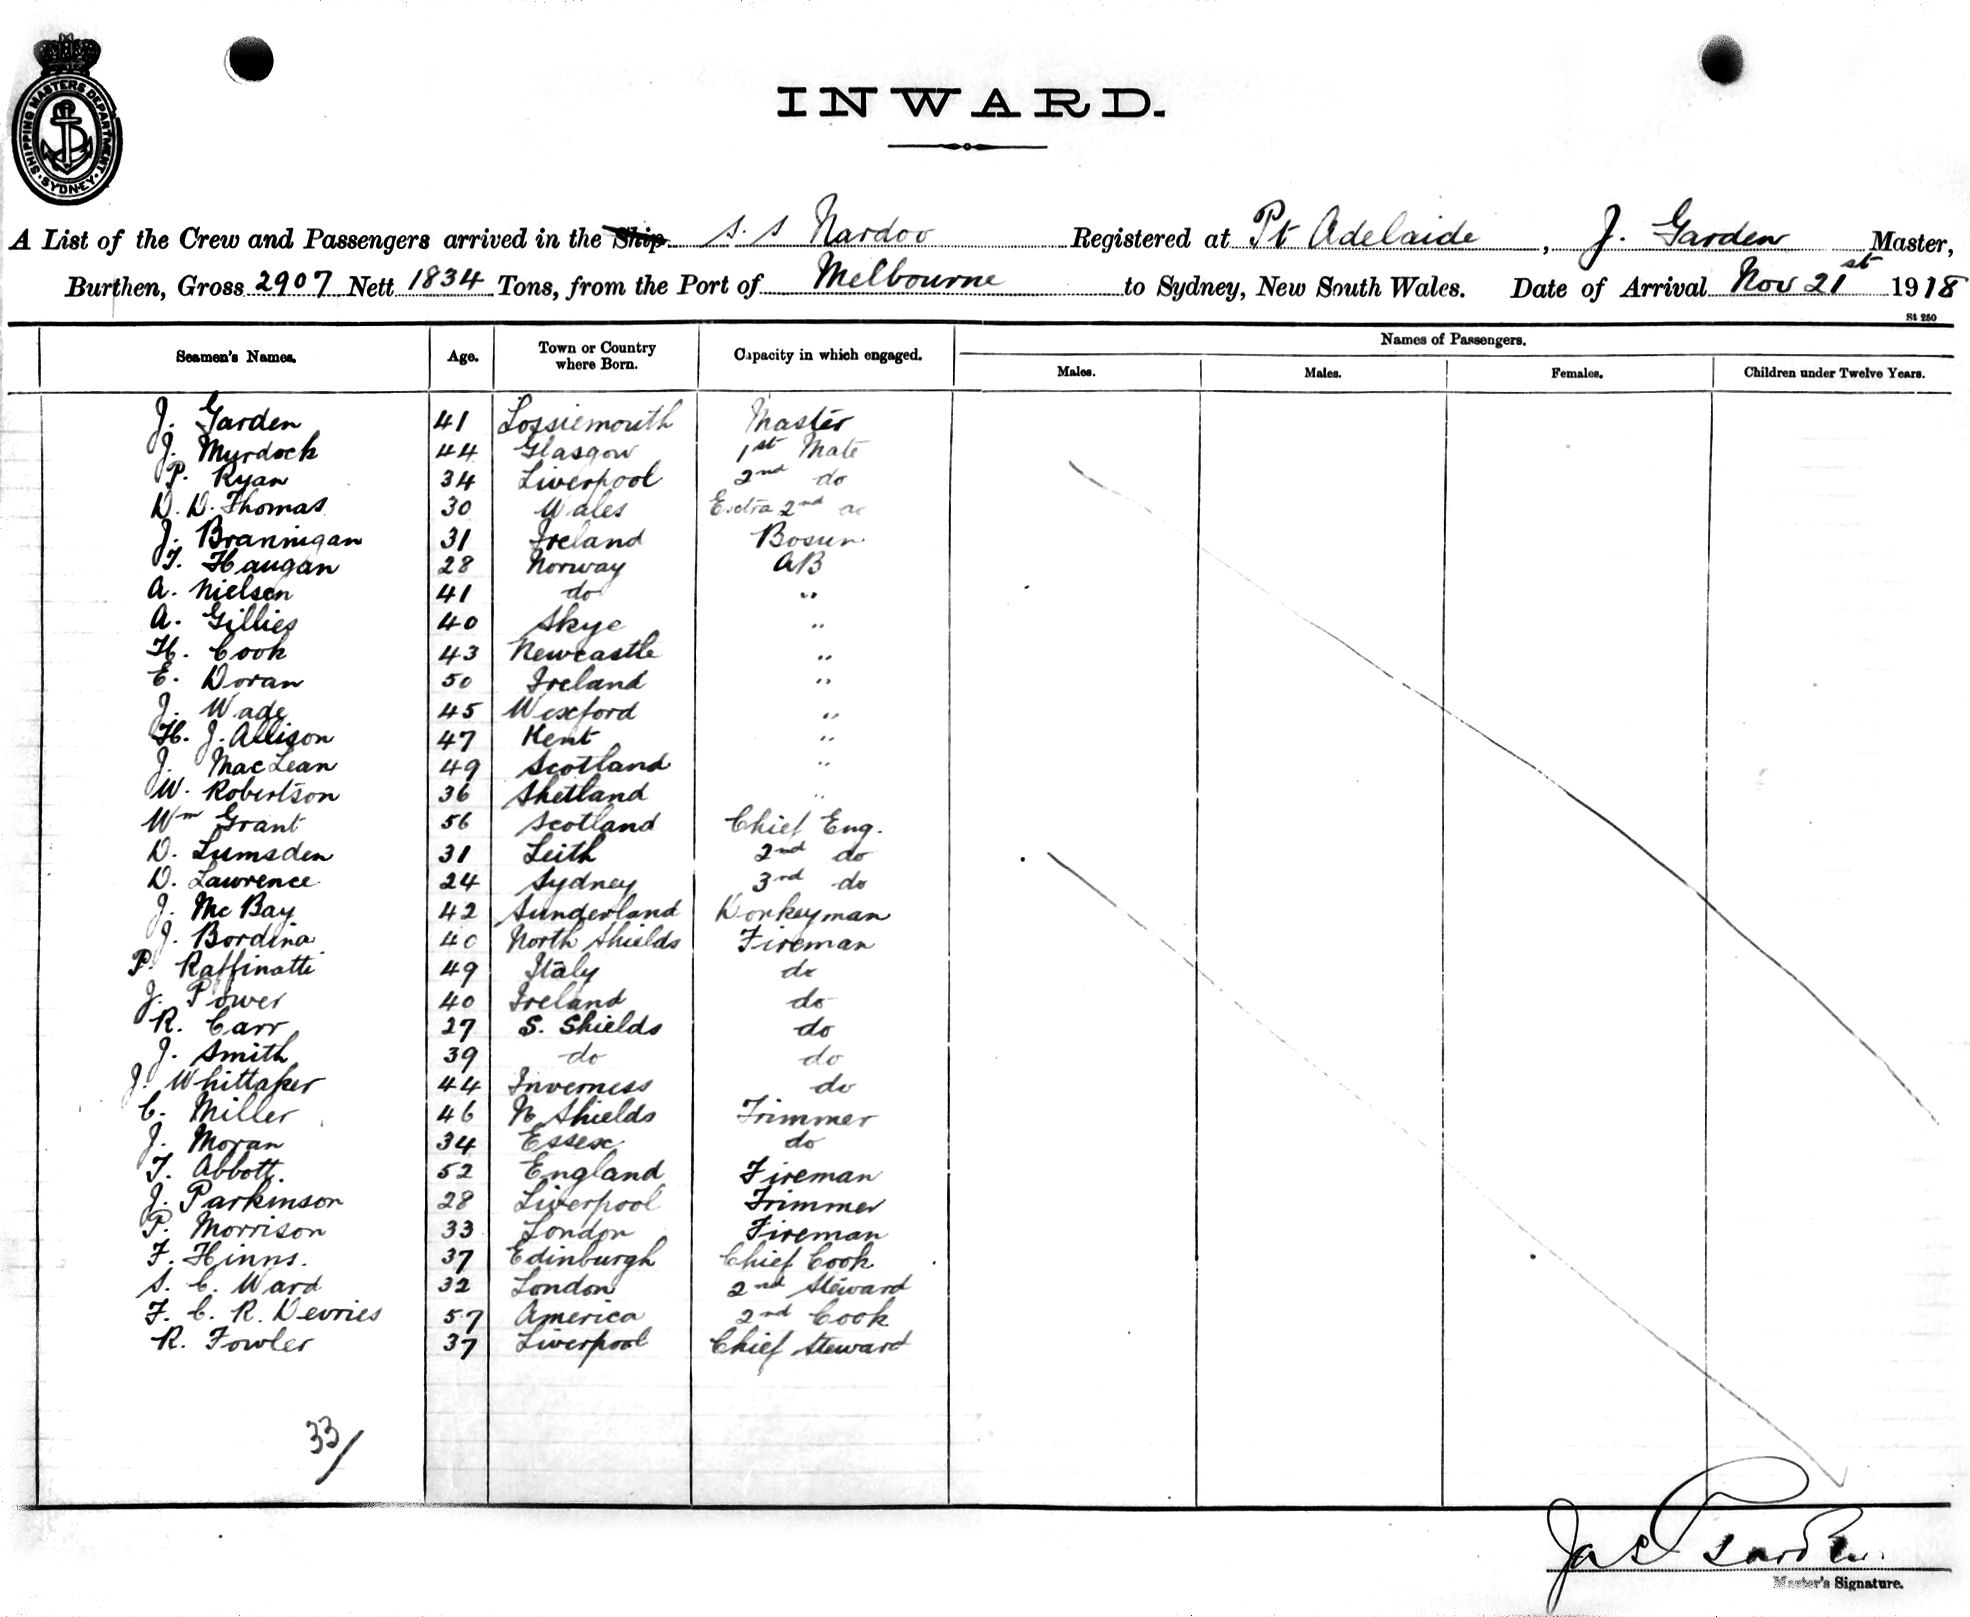 SHIPPING MASTERS DEPARTMENT · SYDNEY ·
INWARD.
A List of the Crew and Passengers arrived in the Ship S. S Nardoo Registered at Pt Adelaide, J. Garden Master,
Burthen, Gross 2907 Nett 1834 Tons, from the Port of Melbourne to Sydney, New South Wales. Date of Arrival Nov 21st 1918
St 250
Seamen's Names. Age. Town or Country where Born. Capacity in which engaged. Names of Passengers.
Males. Males. Females. Children under Twelve Years.
J. Garden 41 Lossiemouth Master
J. Murdock 44 Glasgow 1st Mate
P. Ryan 34 Liverpool 2nd do
D. D. Thomas 30 Wales Extra 2nd do
J. Brannigan 31 Ireland Bosun
T. Haugan 28 Norway AB
A. Nielsen 41 do "
A. Gillies 40 Skye "
H. Cook 43 Newcastle "
E. Doran 50 Ireland "
J. Wade 45 Wexford "
H. J. Allison 47 Kent "
J. MacLean 49 Scotland "
W. Robertson 36 Shetland "
Wm Grant 56 Scotland Chief Eng.
D. Lumsden 31 Leith 2nd do
D. Lawrence 24 Sydney 3rd do
J. McBay 42 Sunderland Donkeyman
J. Bordina 40 North Shields Fireman
P. Raffinatti 49 Italy do
J. Power 40 Ireland do
R. Carr 27 S. Shields do
J. Smith 39 do do
J. Whittaker 44 Inverness do
C. Miller 46 N Shields Trimmer
J. Moran 34 Essex do
T. Abbott. 52 England Fireman
J. Parkinson 28 Liverpool Trimmer
P. Morrison 33 London Fireman
F. Hinns. 37 Edinburgh Chief Cook
S. C. Ward 32 London 2nd Steward
F. C. R. Devries 57 America 2nd Cook
R. Fowler 37 Liverpool Chief Steward
33/
Jas Garden.
Master's Signature.